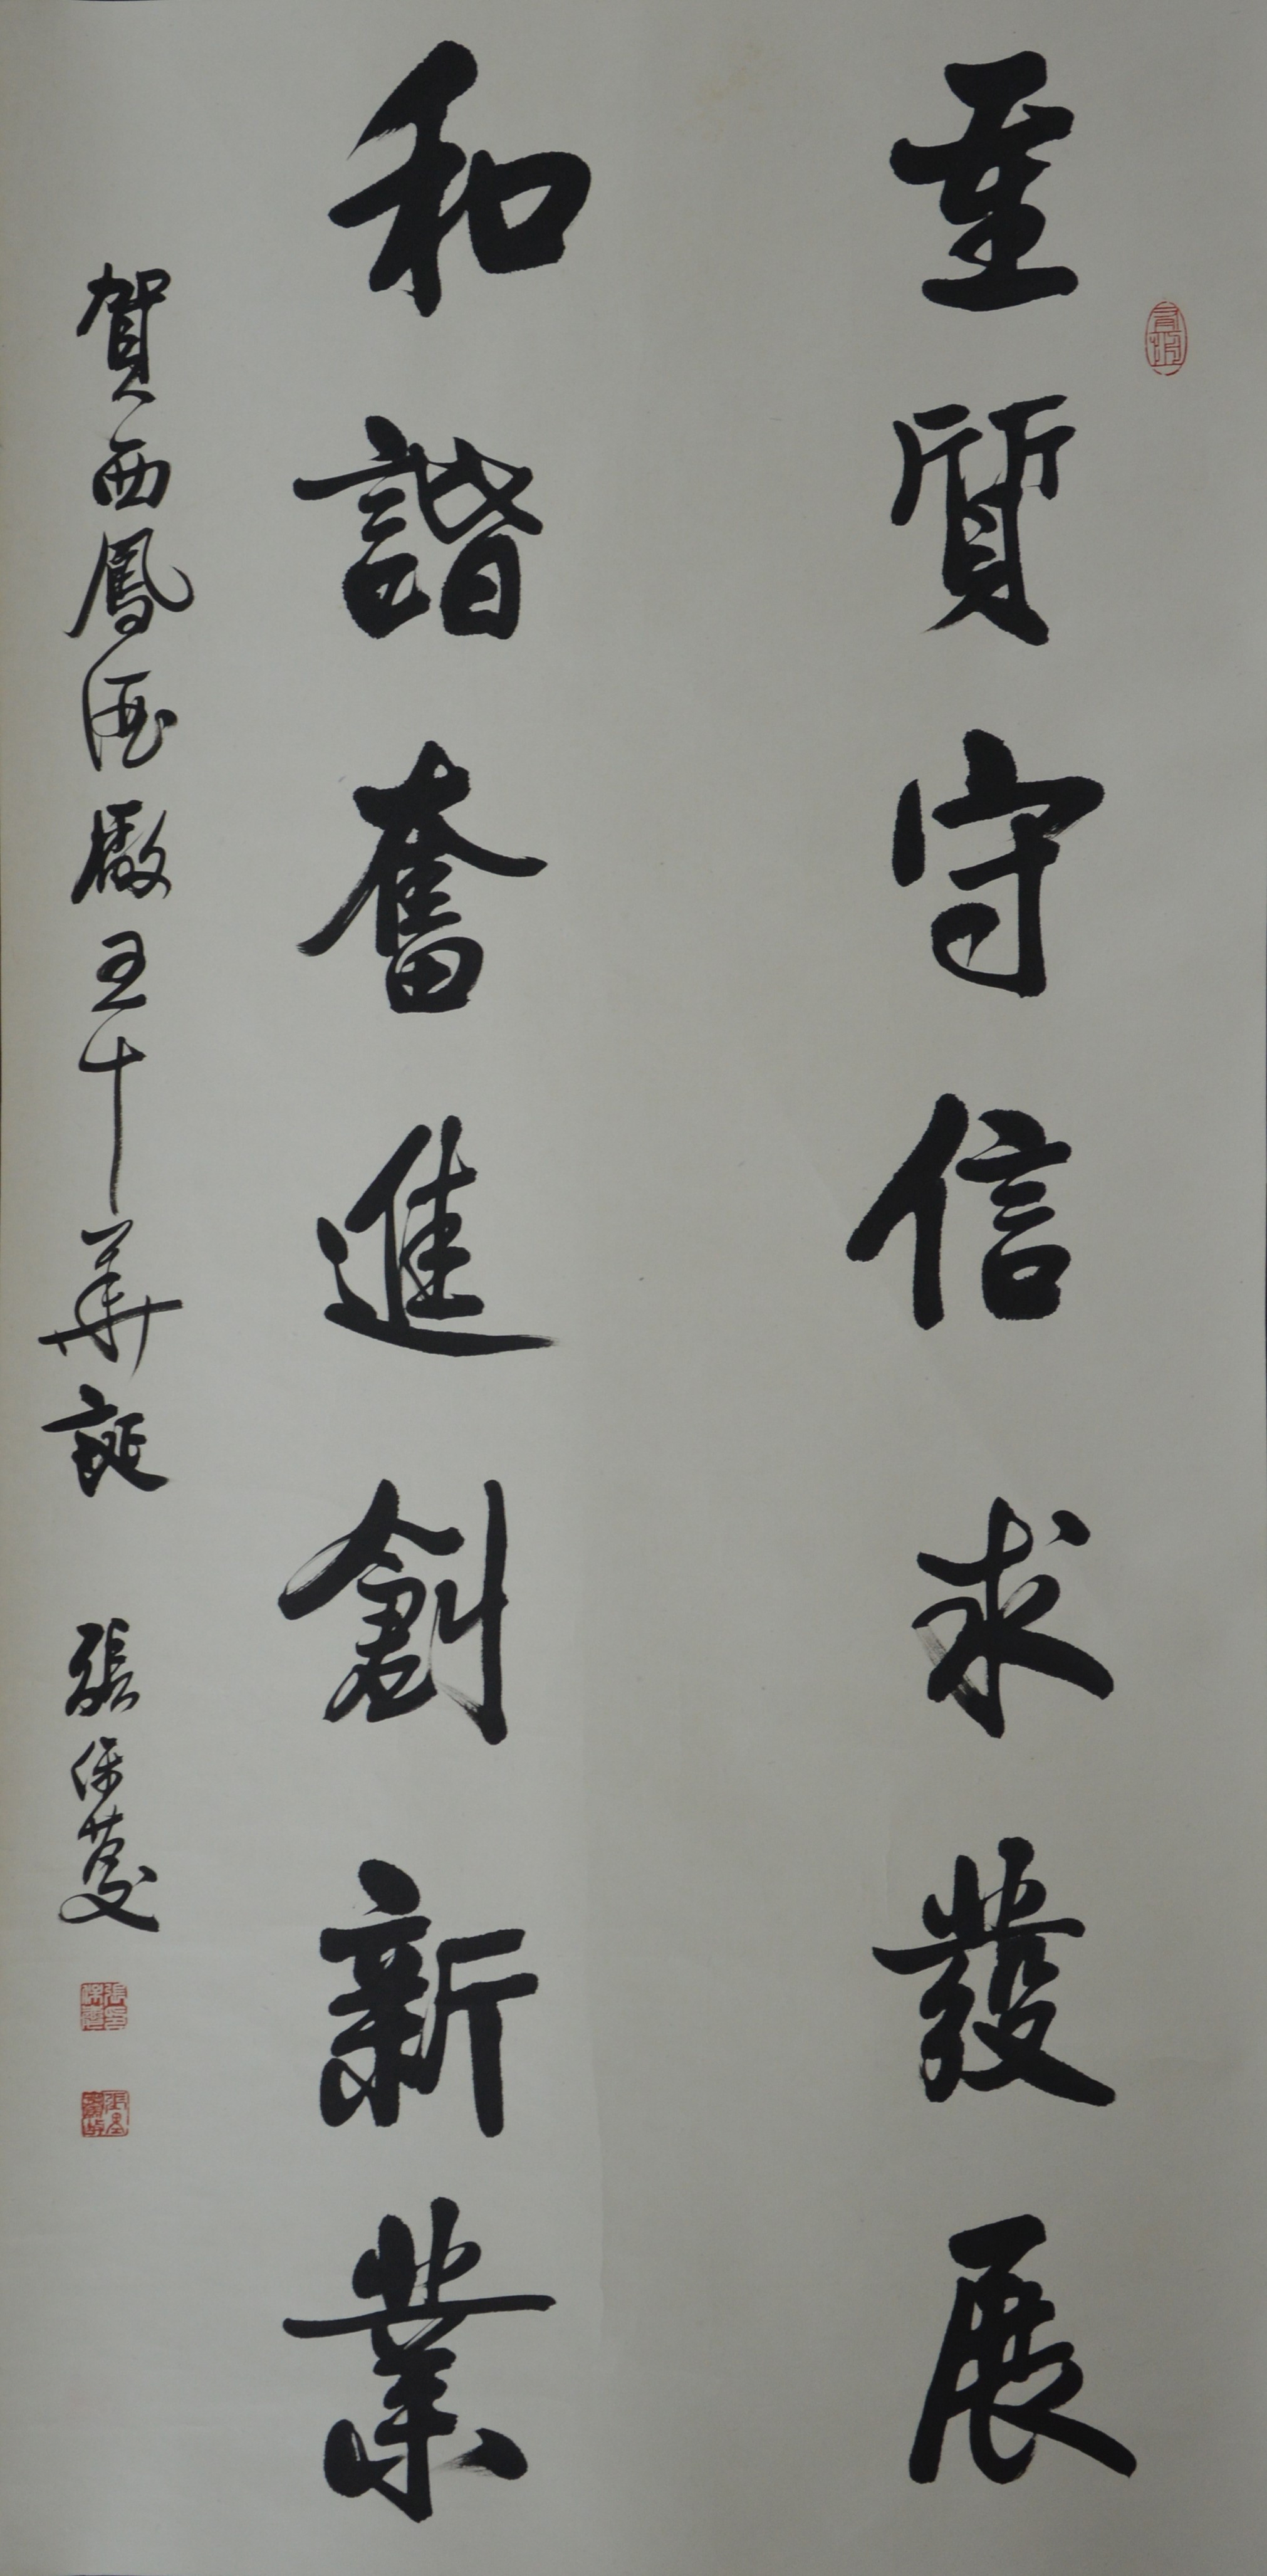 重質守信求發展
和諧奮進創新業
賀西鳳酒廠五十華誕 張保慶